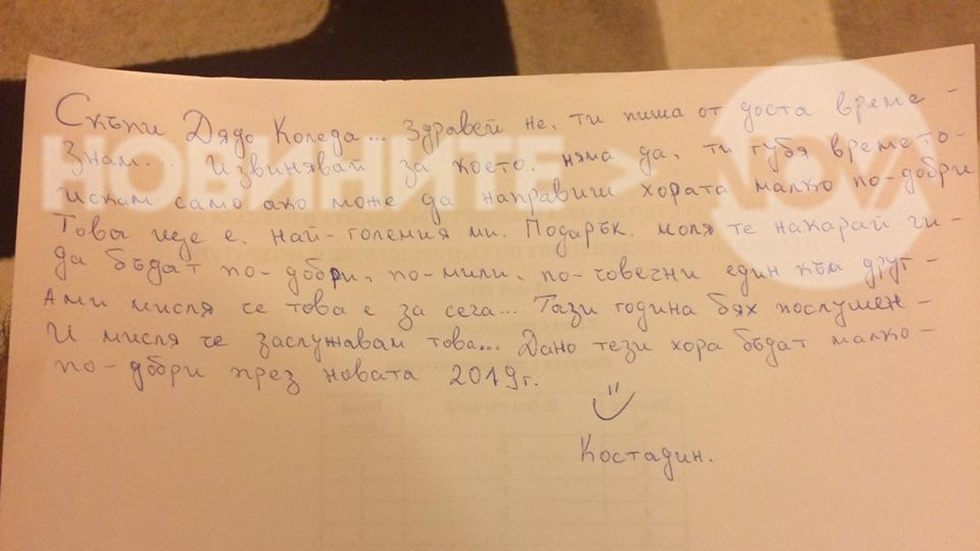 Скъпи Дядо Коледа... Здравей не, ти пиша от доста време -
Знам... Извинявай за което. няма да, ти губя времето -
искам само ако може да направиш хората малко по-добри
Това ще е. най-големия ми. Подарък. моля те накарай ги -
да бъдат по-добри, по-мили, по-човечни един към друг -
Ами мисля се това е за сега... Тази година бях послушен -
И мисля че заслужавам това... Дано тези хора бъдат малко -
по-добри през новата 2019г.
Костадин.
НОВИНИТЕ
NOVA